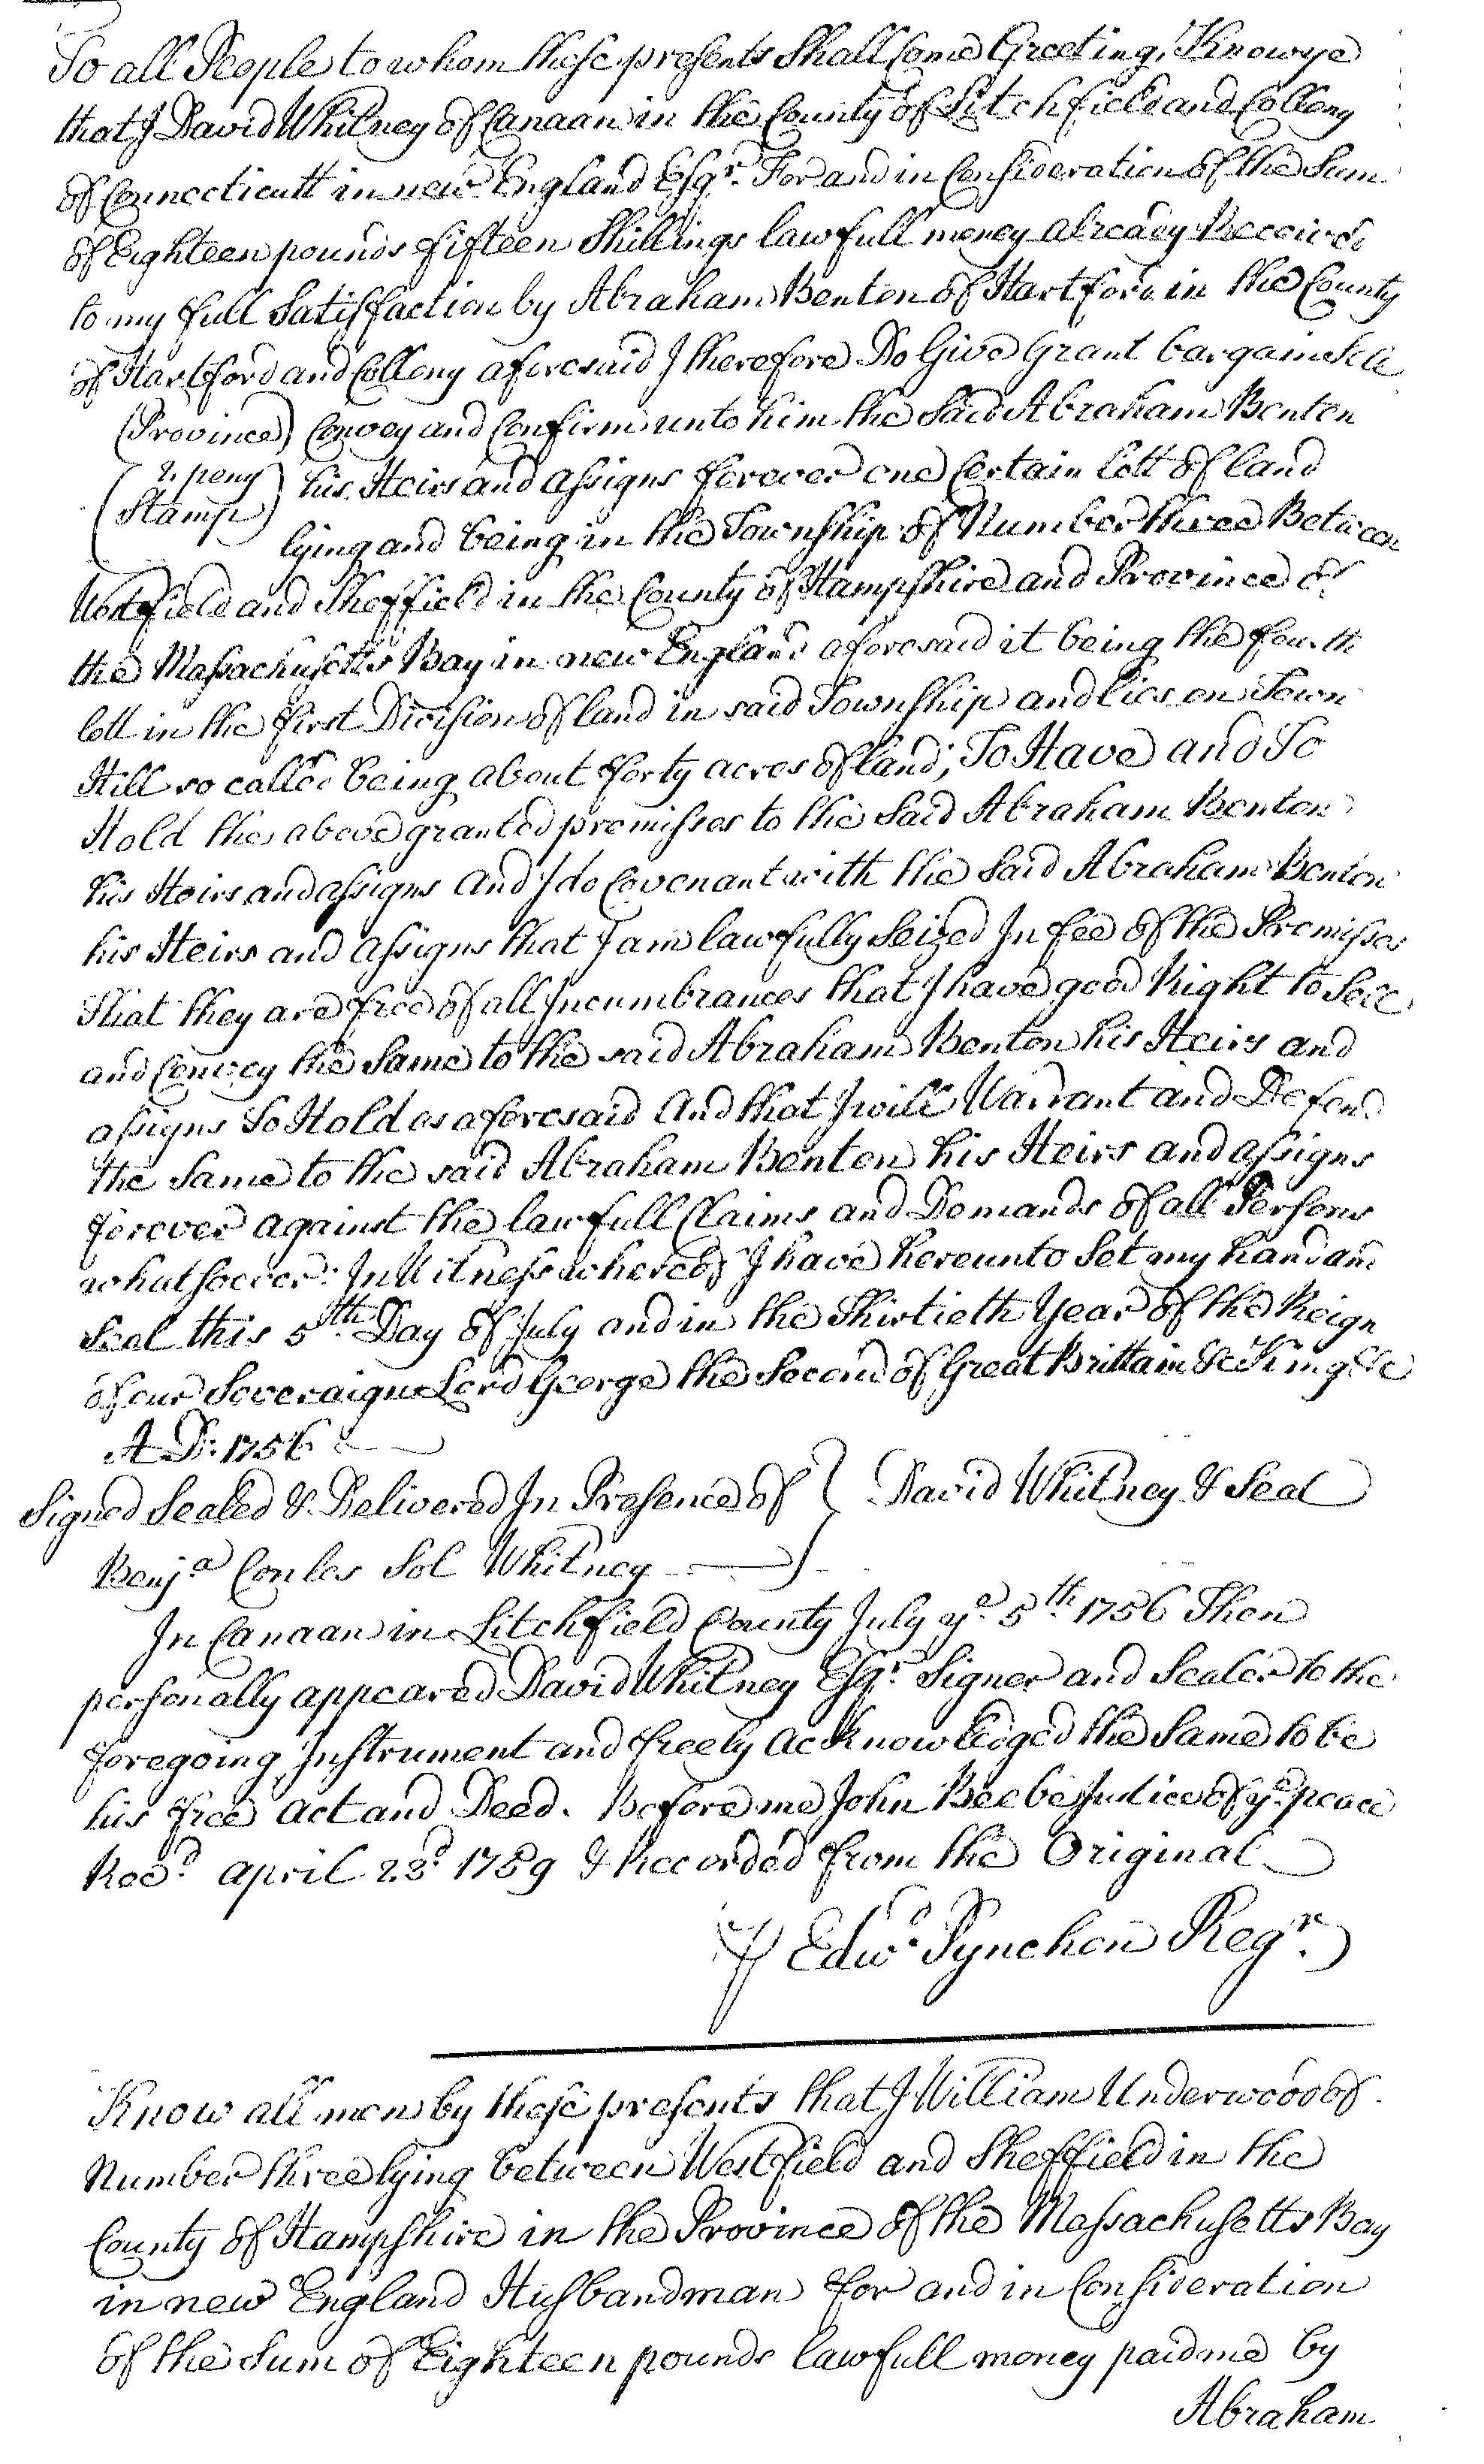 To all People to whom these presents Shall Come Greeting, Know ye
that I David Whitney of Canaan in the County of Litchfield and Collony
of Connecticutt in new England Esqr. For and in Consideration of the Sum
of Eighteen pounds fifteen Shillings lawfull money already Received
to my full Satisfaction by Abraham Benton of Hartford in the County
of Hartford and Collony aforesaid I therefore Do Give Grant bargain Sell
(Province) Convey and Confirm unto him the Said Abraham Benton
(2 peny Stamp) his Heirs and assigns forever one Certain Lott of land
lying and being in the Township of Number three Between
Westfield and Sheffield in the County of Hampshire and Province of
the Massachusetts Bay in new England aforesaid it being the fourth
lott in the first Division of land in said Township and lies on Town
Hill so called being about forty acres of land; To Have and To
Hold the above granted premisses to the Said Abraham Benton
his Heirs and assigns And I do Covenant with the Said Abraham Benton
his Heirs and assigns that I am lawfully Seized In fee of the Premisses
That they are free of all Incumbrances that I have good Right to Sell
and Convey the Same to the said Abraham Benton his Heirs and
assigns To Hold as aforesaid And that I will Warrant and Defend
the Same to the said Abraham Benton his Heirs and assigns
forever against the lawfull Claims and Demands of all Persons
whatsoever: In Witness whereof I have hereunto Set my hand and
Seal this 5th. Day of July and in the Thirtieth Year of the Reign
of our Soveraign Lord George the Second of Great Brittain &c King &c
A D: 1756
Signed Sealed & Delivered In Presence of } David Whitney & Seal
Benja Sol Whitney
In Canaan in Litchfield County July ye. 5th. 1756 Then
personally appeared David Whitney Esqr. Signer and Sealer to the
foregoing Instrument and freely Acknowledged the Same to be
his free Act and Deed. Before me John Beebe Justice of ye. peace
Recd. April 23d 1759 & Recorded from the Original
Edwd. Pynchon Regr.
Know all men by these presents that I William Underwood of
Number three lying between Westfield and Sheffield in the
County of Hampshire in the Province of the Massachusetts Bay
in new England Husbandman for and in Consideration
of the Sum of Eighteen pounds lawfull money paid me by
Abraham